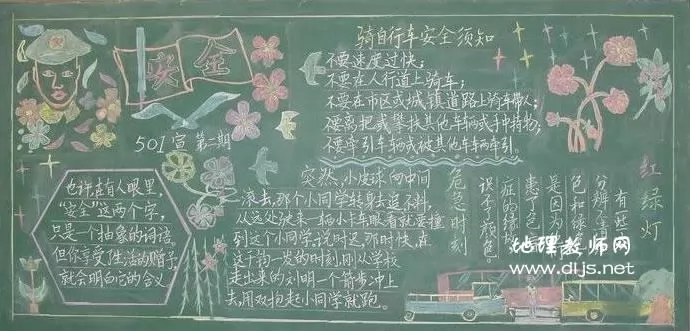 安全
501宣 第二期
也许,在盲人眼里,
“安全”这两个字,
只是一个抽象的词语,
但你享受了生活的赠予,
就会明白它的含义
骑自行车安全须知
不要速度过快;
不要在人行道上骑车;
不要在市区或城镇道路上骑车带人;
不要离把或攀扶其他车辆或手中持物;
不要牵引车辆或被其他车辆牵引。
突然,小皮球向中间
滚去,那个小同学转身去追,不料,
从远处驶来一辆小车眼看就要撞
到这个小同学,说时迟,那时快,在
这千钧一发的时刻,刚从学校
走出来的刘明一个箭步冲上
去,用双抱起小同学就跑。
危急时刻
红绿灯
有些
分辨
色和绿
是因为
患了色
症的缘
误了颜色
地理教师网
www.dljs.net